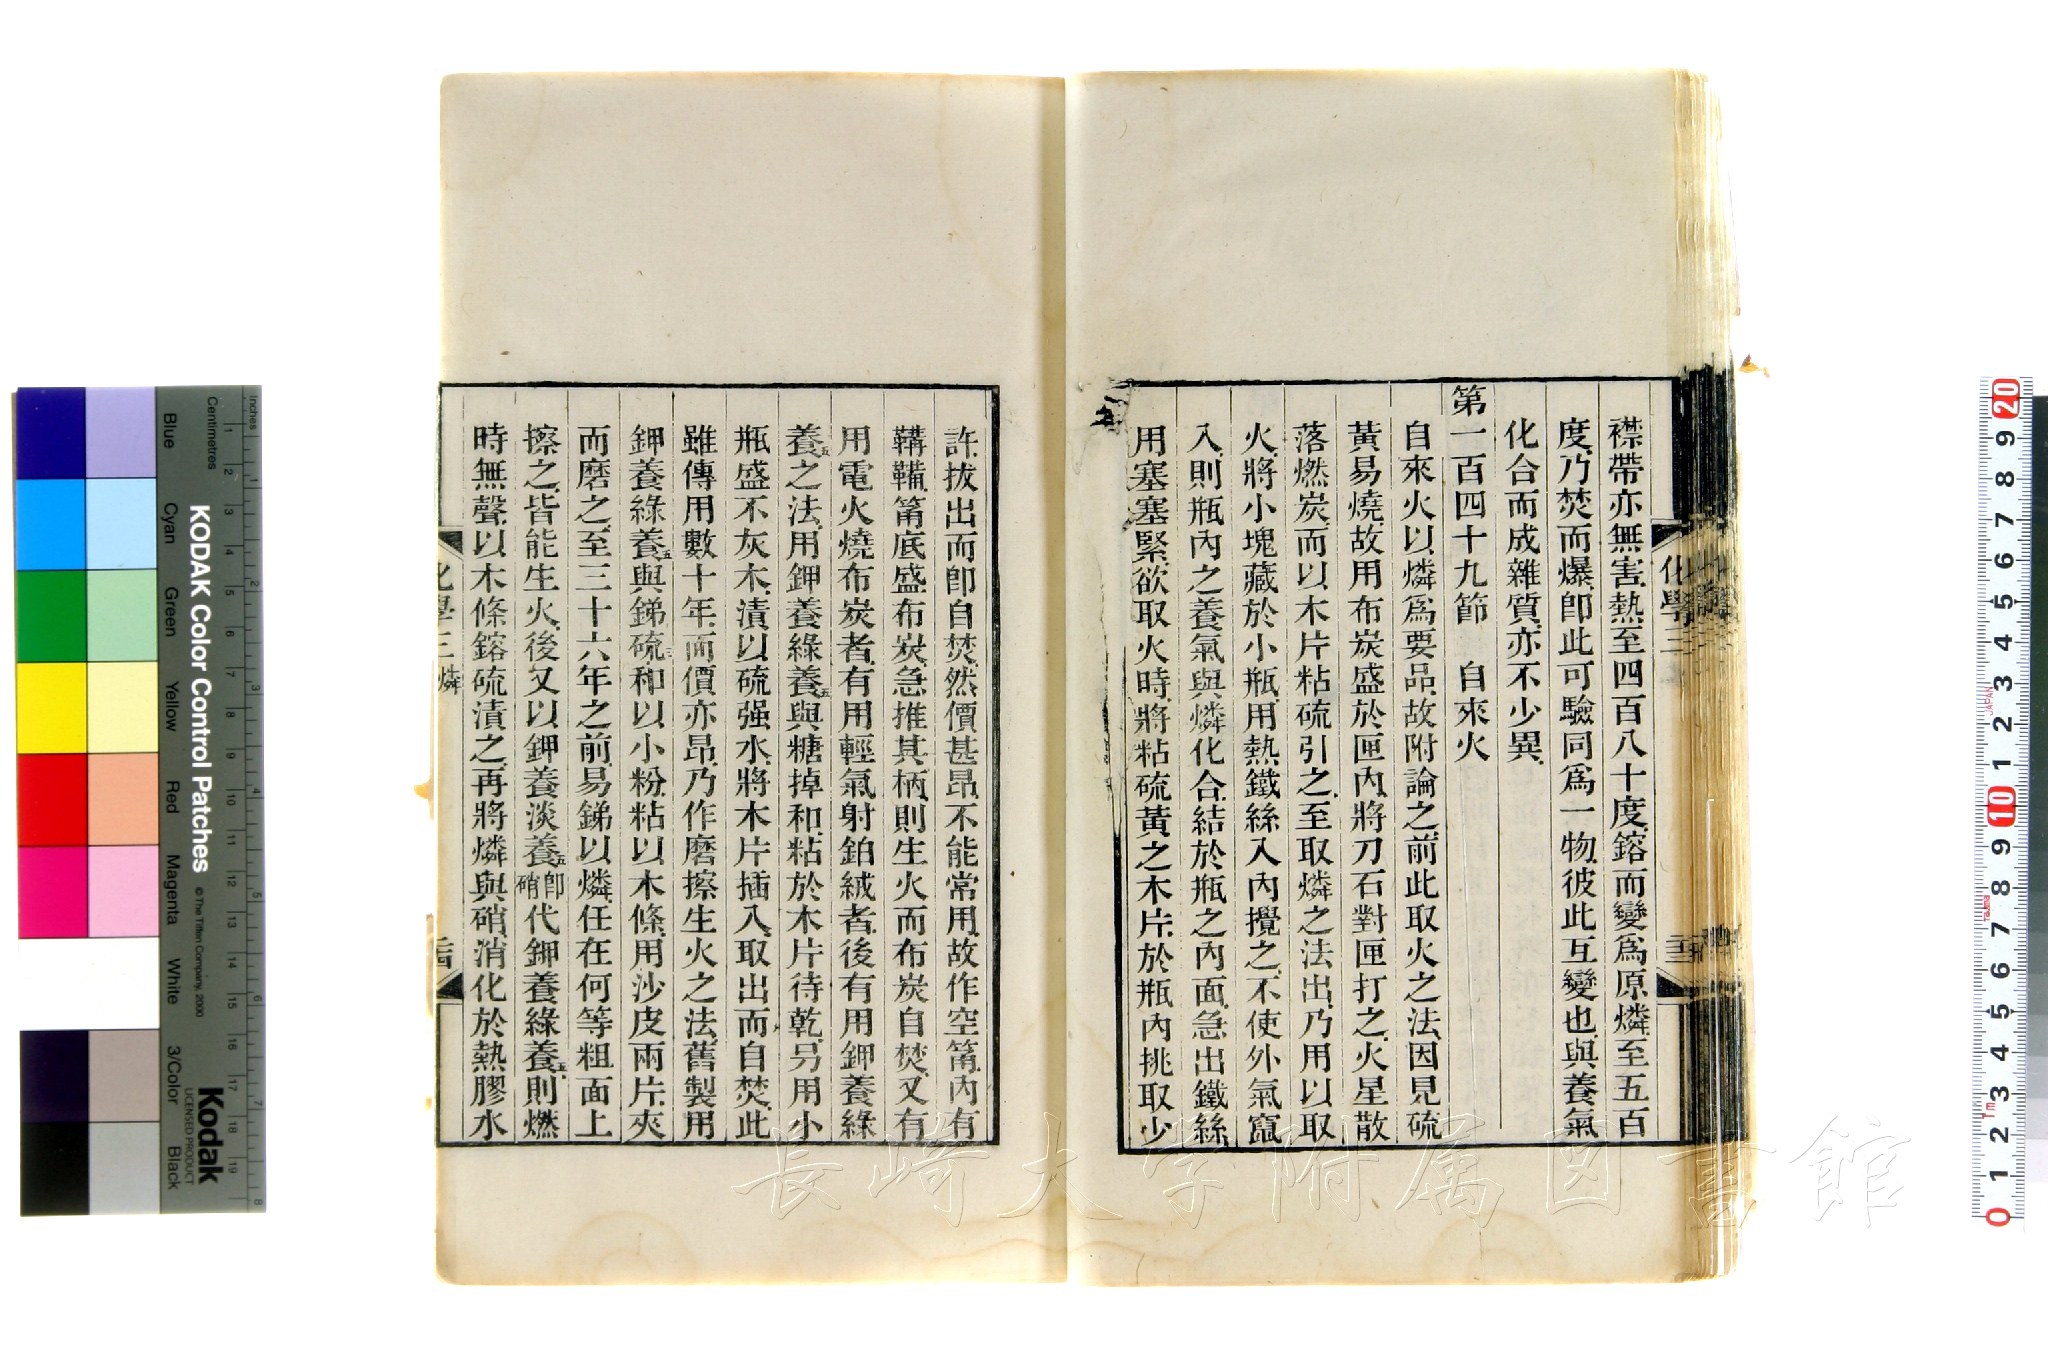 襟帶亦無害熱至四百八十度鎔而變爲原燐至五百
度乃焚而爆卽此可驗同爲一物彼此互變也與養氣
化合而成雜質亦不少異
第一百四十九節 自來火
自來火以燐爲要品故附論之前此取火之法因見硫
黃易燒故用布炭盛於匣內將刀石對匣打之火星散
落燃炭而以木片粘硫引之至取燐之法出乃用以取
火將小塊藏於小瓶用熱鐵絲入內攪之不使外氣竄
入則瓶內之養氣與燐化合結於瓶之內面急出鐵絲
用塞塞緊欲取火時將粘硫黃之木片於瓶內挑取少
許拔出而卽自焚然價甚昂不能常用故作空筩內有
鞲鞴筩底盛布炭急推其柄則生火而布炭自焚又有
用電火燒布炭者有用輕氣射鉑絨者後有用鉀養綠
養五之法用鉀養綠養五與糖掉和粘於木片待乾另用小
瓶盛不灰木漬以硫强水將木片插入取出而自焚此
雖傳用數十年而價亦昂乃作磨擦生火之法舊製用
鉀養綠養五與銻硫三和以小粉粘以木條用沙皮兩片夾
而磨之至三十六年之前易銻以燐任在何等粗面上
擦之皆能生火後又以鉀養淡養五卽硝代鉀養綠養五則燃
時無聲以木條鎔硫漬之再將燐與硝消化於熱膠水
化學三
化學三 燐
長崎大学附属図書館
KODAK Color Control Patches
© The Tiffen Company, 2000
Kodak
LICENSED PRODUCT
Inches
Centimetres
Blue
Cyan
Green
Yellow
Red
Magenta
White
3/Color
Black